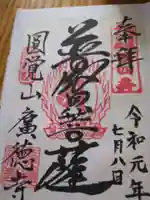 奉拝
令和元年
七月八日
普賢菩薩
圓覚山 廣德寺